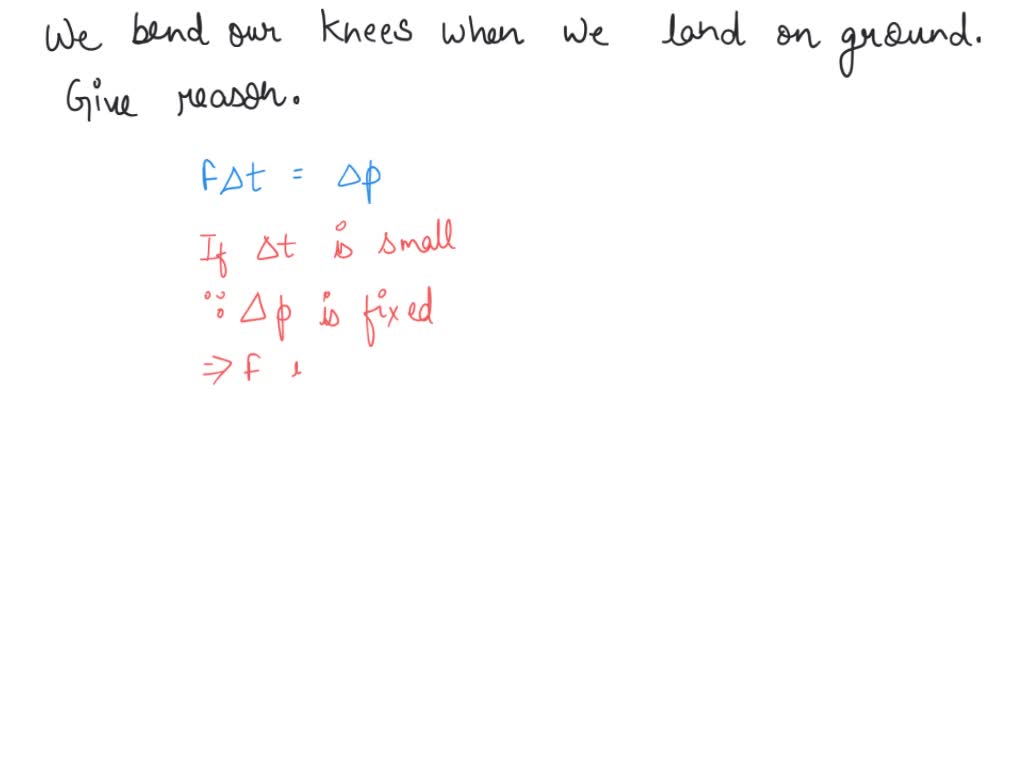 We bend our knees when we land on ground.
Give reason.
FΔt = Δp
If Δt is small
∵ Δp is fixed
⇒ F